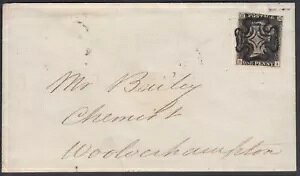 POSTAGE
ONE PENNY
Mr Bailey
Chemist
Woolverhampton